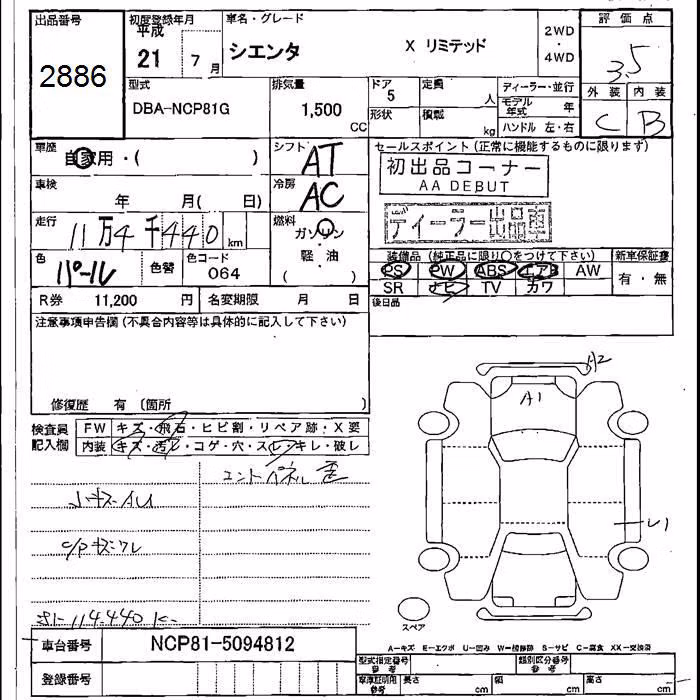 出品番号 初度登録年月 車名・グレード 評価点
2886 平成 21 7月 シエンタ X リミテッド 2WD ・ 4WD 3.5
型式 排気量 ドア 定員 ディーラー・並行 外装 内装
DBA-NCP81G 1,500 CC 5 人 モデル年式 年 C B
形状 積載 kg ハンドル 左・右
車歴 自家用・( ) シフト AT セールスポイント(正常に機能するものに限ります)
初出品コーナー
AA DEBUT
車検 年 月( 日) 冷房 AC
ディーラー出品車
走行 11万4千440km 燃料 ガソリン
軽・油
( )
色 パール 色替 色コード 064
装備品(純正品に限り○をつけて下さい) 新車保証書
PS PW ABS エアB AW 有・無
SR ナビ TV カワ
R券 11,200 円 名変期限 月 日 後日品
注意事項申告欄(不具合内容等は具体的に記入して下さい)
修復歴 有 (箇所 )
A2
A1
検査員記入欄 FW キズ・飛石・ヒビ割・リペア跡・X要
内装 キズ・汚レ・コゲ・穴・スレ・キレ・破レ
U1
スペア
A-キズ E-エクボ U-凹み W-補修跡 S-サビ C-腐食 XX-交換済
車台番号 NCP81-5094812
型式指定番号 参考 類別区分番号 参考
登録番号
車庫証明用 参考 長さ cm 幅 cm 高さ cm